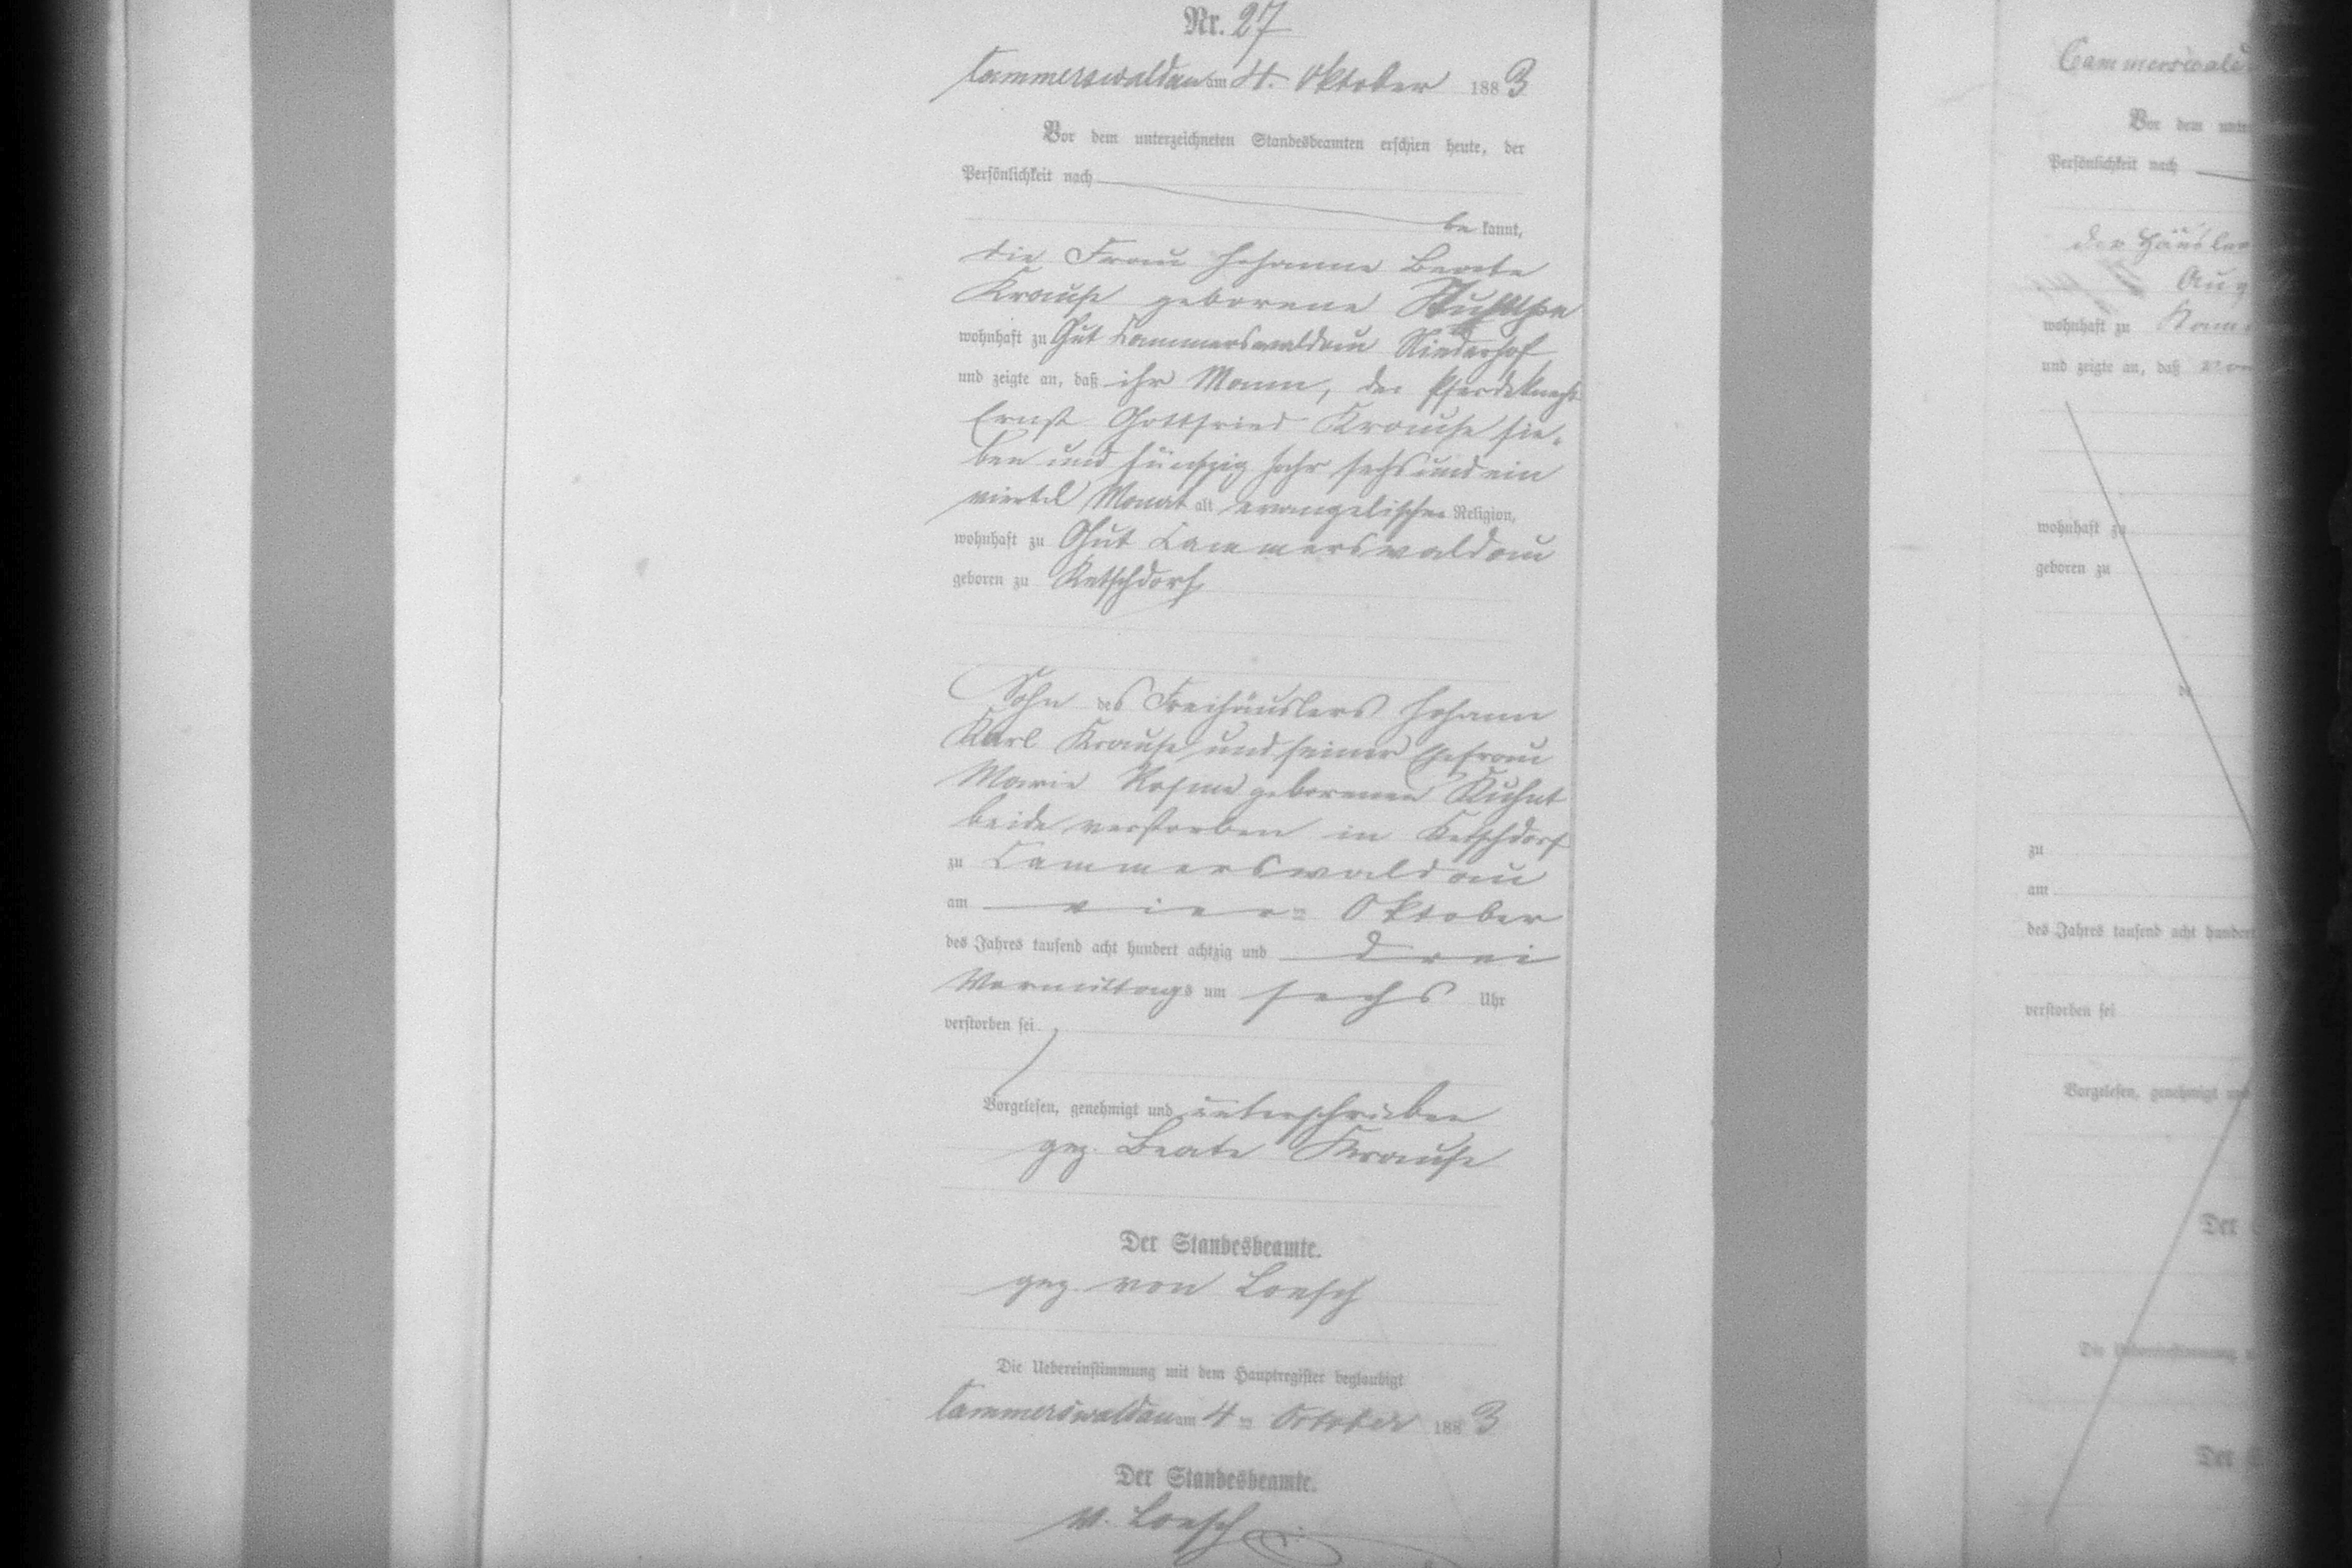 Nr. 27
Cammerswaldau am 4. Oktober 1883
Vor dem unterzeichneten Standesbeamten erschien heute, der
Persönlichkeit nach
be kannt,
die Frau Johanne Beate
Krause geborene
wohnhaft zu Gut Cammerswaldau Niederhof
und zeigte an, daß ihr Mann, der Pferdeknecht
Ernst Gottfried Krause sie-
ben und fünfzig Jahr sechs und ein
viertel Monat alt evangelischer Religion,
wohnhaft zu Gut Cammerswaldau
geboren zu Ketschdorf
Sohn des Freihäuslers Johann
Karl Krause und seiner Ehefrau
Marie Rosine geborenen Kuhnt
beide verstorben in Ketschdorf
zu Cammerswaldau
am vier ten Oktober
des Jahres tausend acht hundert achtzig und drei
Vormittags um sechs Uhr
verstorben sei
Vorgelesen, genehmigt und unterschrieben
gez. Beate Krause
Der Standesbeamte.
gez. von Loesch
Die Uebereinstimmung mit dem Hauptregister beglaubigt
Cammerswaldau am 4ten October 1883
Der Standesbeamte.
v. Loesch
Vor dem
Persönlichkeit nach
der Häusler
wohnhaft zu
und zeigte an, daß
wohnhaft zu
geboren zu
zu
am
des Jahres tausend acht hundert
verstorben sei
Vorgelesen, genehmigt und
Der
Die
Der